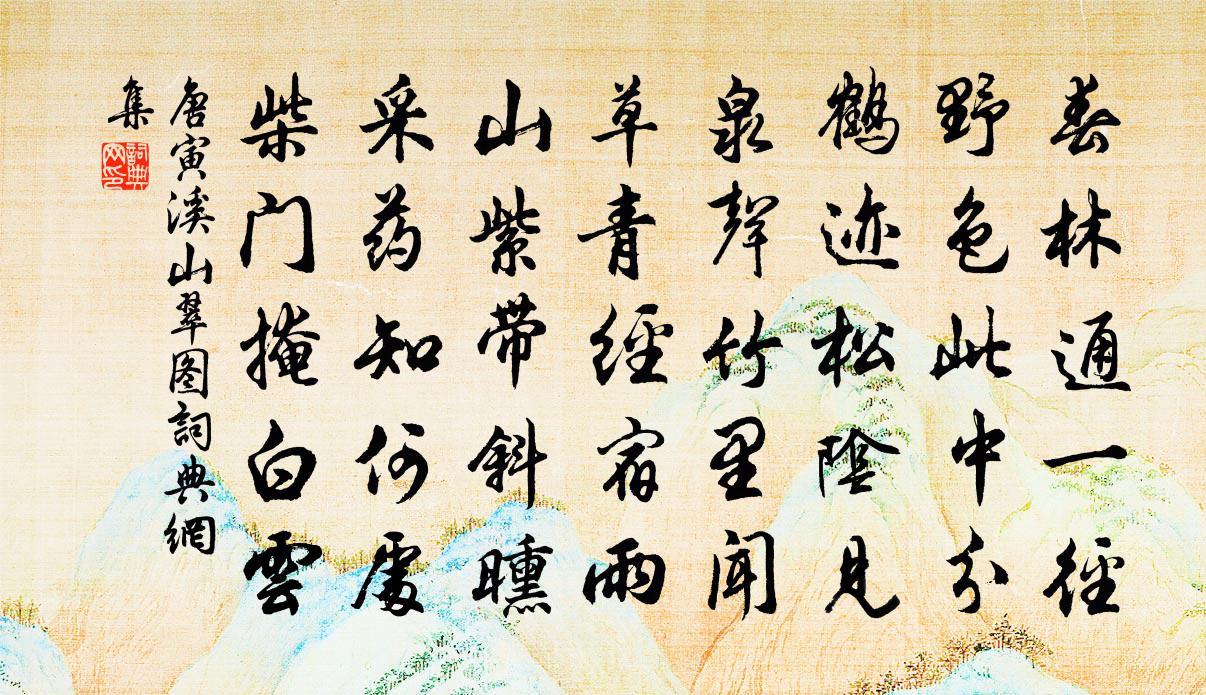 春林通一径
野色此中分
鹤迹松陰见
泉聲竹里闻
草青經宿雨
山紫带斜曛
采药知何處
柴门掩白雲
唐寅溪山翠图詞典網
集
詞典网印